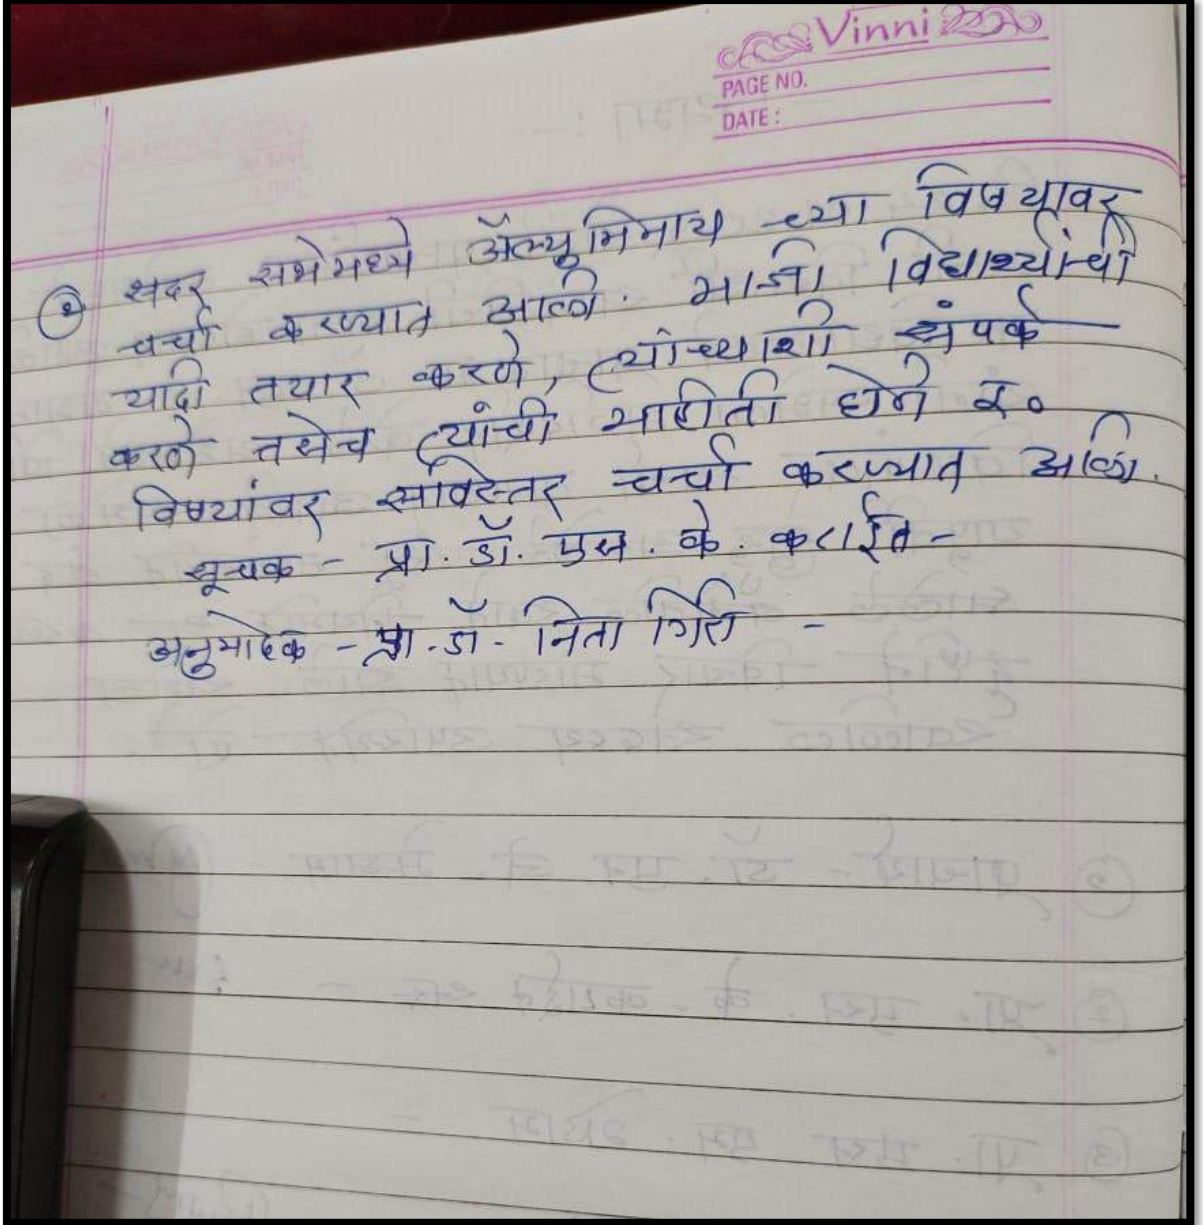 Vinni
PAGE NO.
DATE :
② सदर सभेमध्ये अ‍ॅल्युमिनाय च्या विषयावर
चर्चा करण्यात आली. माजी विद्यार्थ्यांची
यादी तयार करणे, त्यांच्याशी संपर्क
करणे तसेच त्यांची माहीती घेने इ०
विषयांवर सविस्तर चर्चा करण्यात आली.
सूचक - प्रा. डॉ. एस. के. कराईत -
अनुमोदक - प्रा. डॉ. निता गिरी -